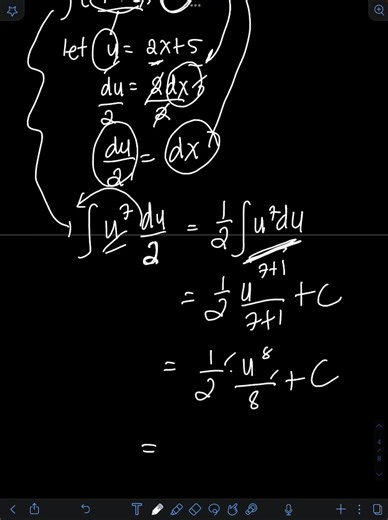 let u = 2x+5
du/2 = 2dx/2
du/2 = dx
∫ u^7 du/2 = 1/2 ∫ u^7 du
= 1/2 u^(7+1)/(7+1) + C
= 1/2 · u^8/8 + C
=